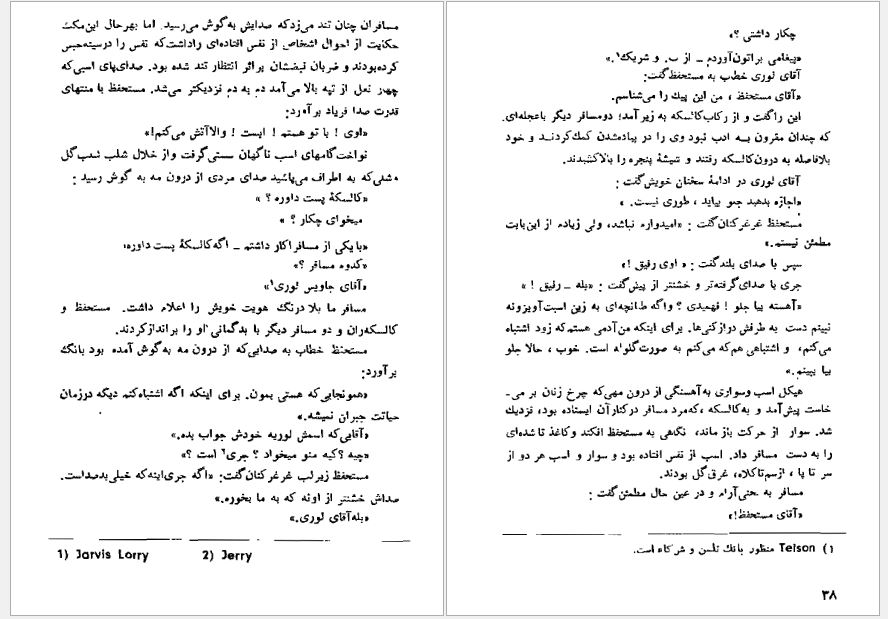 مسافران چنان تند می‌زدکه صدایش به‌گوش می‌رسید. اما بهرحال این‌مکث
حکایت از احوال اشخاص از نفس افتاده‌ای راداشت‌که نفس را درسینه‌حبس
کرده‌بودند و ضربان نبضشان براثر انتظار تند شده بود. صدای‌پای اسبی‌که
چهار نعل از تپه بالا می‌آمد دم به دم نزدیکتر می‌شد. مستحفظ با منتهای
قدرت صدا فریاد برآورد:
«اوی ! با تو هستم ! ایست ! والاآتش می‌کنم!»
نواخت‌گامهای اسب ناگهان سستی‌گرفت واز خلال شلپ شلپ‌گل
و شلی‌که به اطراف می‌پاشید صدای مردی از درون مه به گوش رسید :
«کالسکهٔ پست داوره ؟ »
میخوای چکار ؟ »
«با یکی از مسافرا کار داشتم ــ اگه‌کالسکهٔ پست داوره؛
«کدوم مسافر ؟»
«آقای جاویس لوری۱»
مسافر ما بلا درنگ هویت خویش را اعلام داشت. مستحفظ و
کالسکه‌ران و دو مسافر دیگر با بدگمانی او را براندازکردند.
مستحفظ خطاب به صدایی‌که از درون مه به‌گوش آمده بود بانگ
برآورد:
«همونجایی‌که هستی بمون. برای اینکه اگه اشتباه‌کنم دیگه درزمان
حیاتت جبران نمیشه.»
«آقایی‌که اسمش لوریه خودش جواب بده.»
«چیه ؟کیه منو میخواد ؟ جری۲ است ؟»
مستحفظ زیرلب غرغرکنان‌گفت: «اگه جری‌اینه‌که خیلی‌بدصداست.
صداش خشنتر از اونه که به ما بخوره.»
«بله‌آقای لوری.»
1) Jarvis Lorry 2) Jerry
چکار داشتی ؟»
«پیغامی براتون‌آوردم ــ از ب. و شریک۱.»
آقای لوری خطاب به مستحفظ‌گفت:
«آقای مستحفظ ، من این پیک را می‌شناسم.
این راگفت و از رکاب‌کالسکه به زیر آمد؛ دومسافر دیگر باعجله‌ای.
که چندان مقرون به ادب نبود وی را در پیاده‌شدن کمک‌کردند و خود
بلافاصله به درون‌کالسکه رفتند و شیشهٔ پنجره را بالاکشیدند.
آقای لوری در ادامهٔ سخنان خویش‌گفت :
«اجازه بدهید جلو بیاید ، طوری نیست. »
مستحفظ غرغرکنان‌گفت : «امیدوارم نباشد، ولی زیادم از این‌بابت
مطمئن نیستم.»
سپس با صدای بلندگفت : « اوی رفیق !»
جری با صدای‌گرفته‌تر و خشنتر از پیش‌گفت : «بله ــ رفیق ! »
«آهسته بیا جلو ! فهمیدی ؟ واگه طپانچه‌ای به زین اسبت‌آویزونه
نبینم دست به طرفش درازکنی‌ها. برای اینکه من‌آدمی هستم‌که زود اشتباه
می‌کنم، و اشتباهی هم‌که می‌کنم به صورت‌گلوله است. خوب ، حالا جلو
بیا ببینم.»
هیکل اسب وسواری به‌آهستگی از درون مهی‌که چرخ زنان بر می‌ــ
خاست پیش‌آمد و به‌کالسکه ،که‌مرد مسافر درکنارآن ایستاده بود، نزدیک
شد. سوار از حرکت بازماند، نگاهی به مستحفظ افکند وکاغذ تا شده‌ای
را به دست مسافر داد. اسب از نفس افتاده بود و سوار و اسب هر دو از
سر تا پا ، ازسم‌تاکلاه، غرق‌گل بودند.
مسافر به لحنی‌آرام و در عین حال مطمئن‌گفت :
«آقای مستحفظ!»
۱) Telson منظور بانک تلسن و شرکاء است.
۳۸